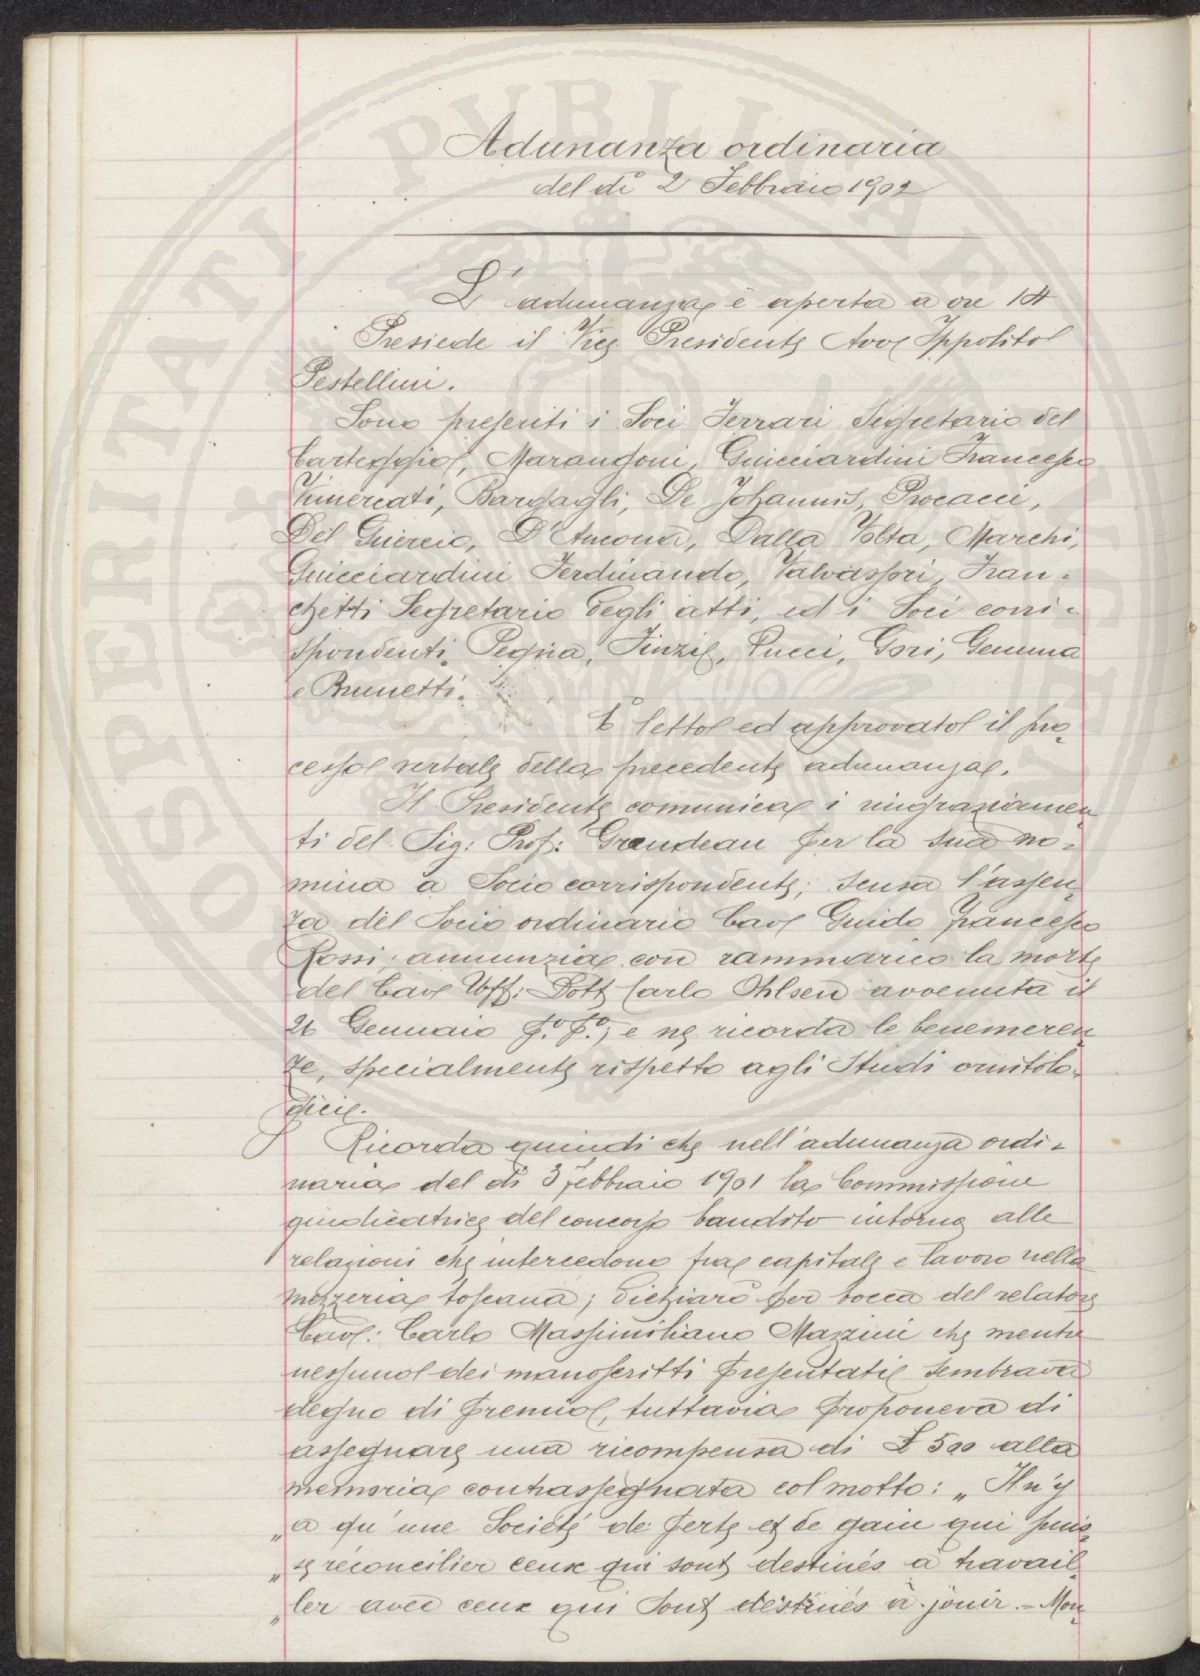 Adunanza ordinaria
del dì 2 Febbraio 1902
L'adunanza è aperta a ore 14
Presiede il Vice Presidente Avv Ippolito
Pestellini.
Sono presenti i Soci Ferrari Segretario del
Carteggio, Marangoni, Guicciardini Francesco
Vimercati, Bargagli, De Johannis, Procacci,
Del Guercio, D'Ancona, Dalla Volta, Marchi,
Guicciardini Ferdinando, Valvassori, Fran-
chetti Segretario degli atti, ed i Soci corri-
spondenti Pegna, Finzi, Pucci, Gori, Gemma
e Brunetti.
È letto ed approvato il pro-
cesso verbale della precedente adunanza.
Il Presidente comunica i ringraziamen-
ti del Sig: Prof: Grandeau per la sua no-
mina a Socio corrispondente; scusa l'assen-
za del Socio ordinario Cav Guido Francesco
Rossi; annunzia con rammarico la morte
del Cav Uff: Dott Carlo Ohlsen avvenuta il
26 Gennaio p.º p.º; e ne ricorda le benemeren-
ze, specialmente rispetto agli Studi ornitolo-
gici.
Ricorda quindi che nell'adunanza ordi-
naria del dì 3 febbraio 1901 la Commissione
giudicatrice del concorso bandito intorno alle
relazioni che intercedono fra capitale e lavoro nella
mezzeria toscana; dichiarò per bocca del relatore
Cav: Carlo Massimiliano Mazzini che mentre
nessuno dei manoscritti presentati sembrava
degno di premio, tuttavia proponeva di
assegnare una ricompensa di £ 500 alla
memoria contrassegnata col motto: „ Il n'y
„ a qu'une Societé de perte et de gain qui puis-
„ se réconcilier ceux qui sont destinés à travail-
„ ler avec ceux qui sont destinés à jouir. - Mon-
OSPERITATI PUBLICAE